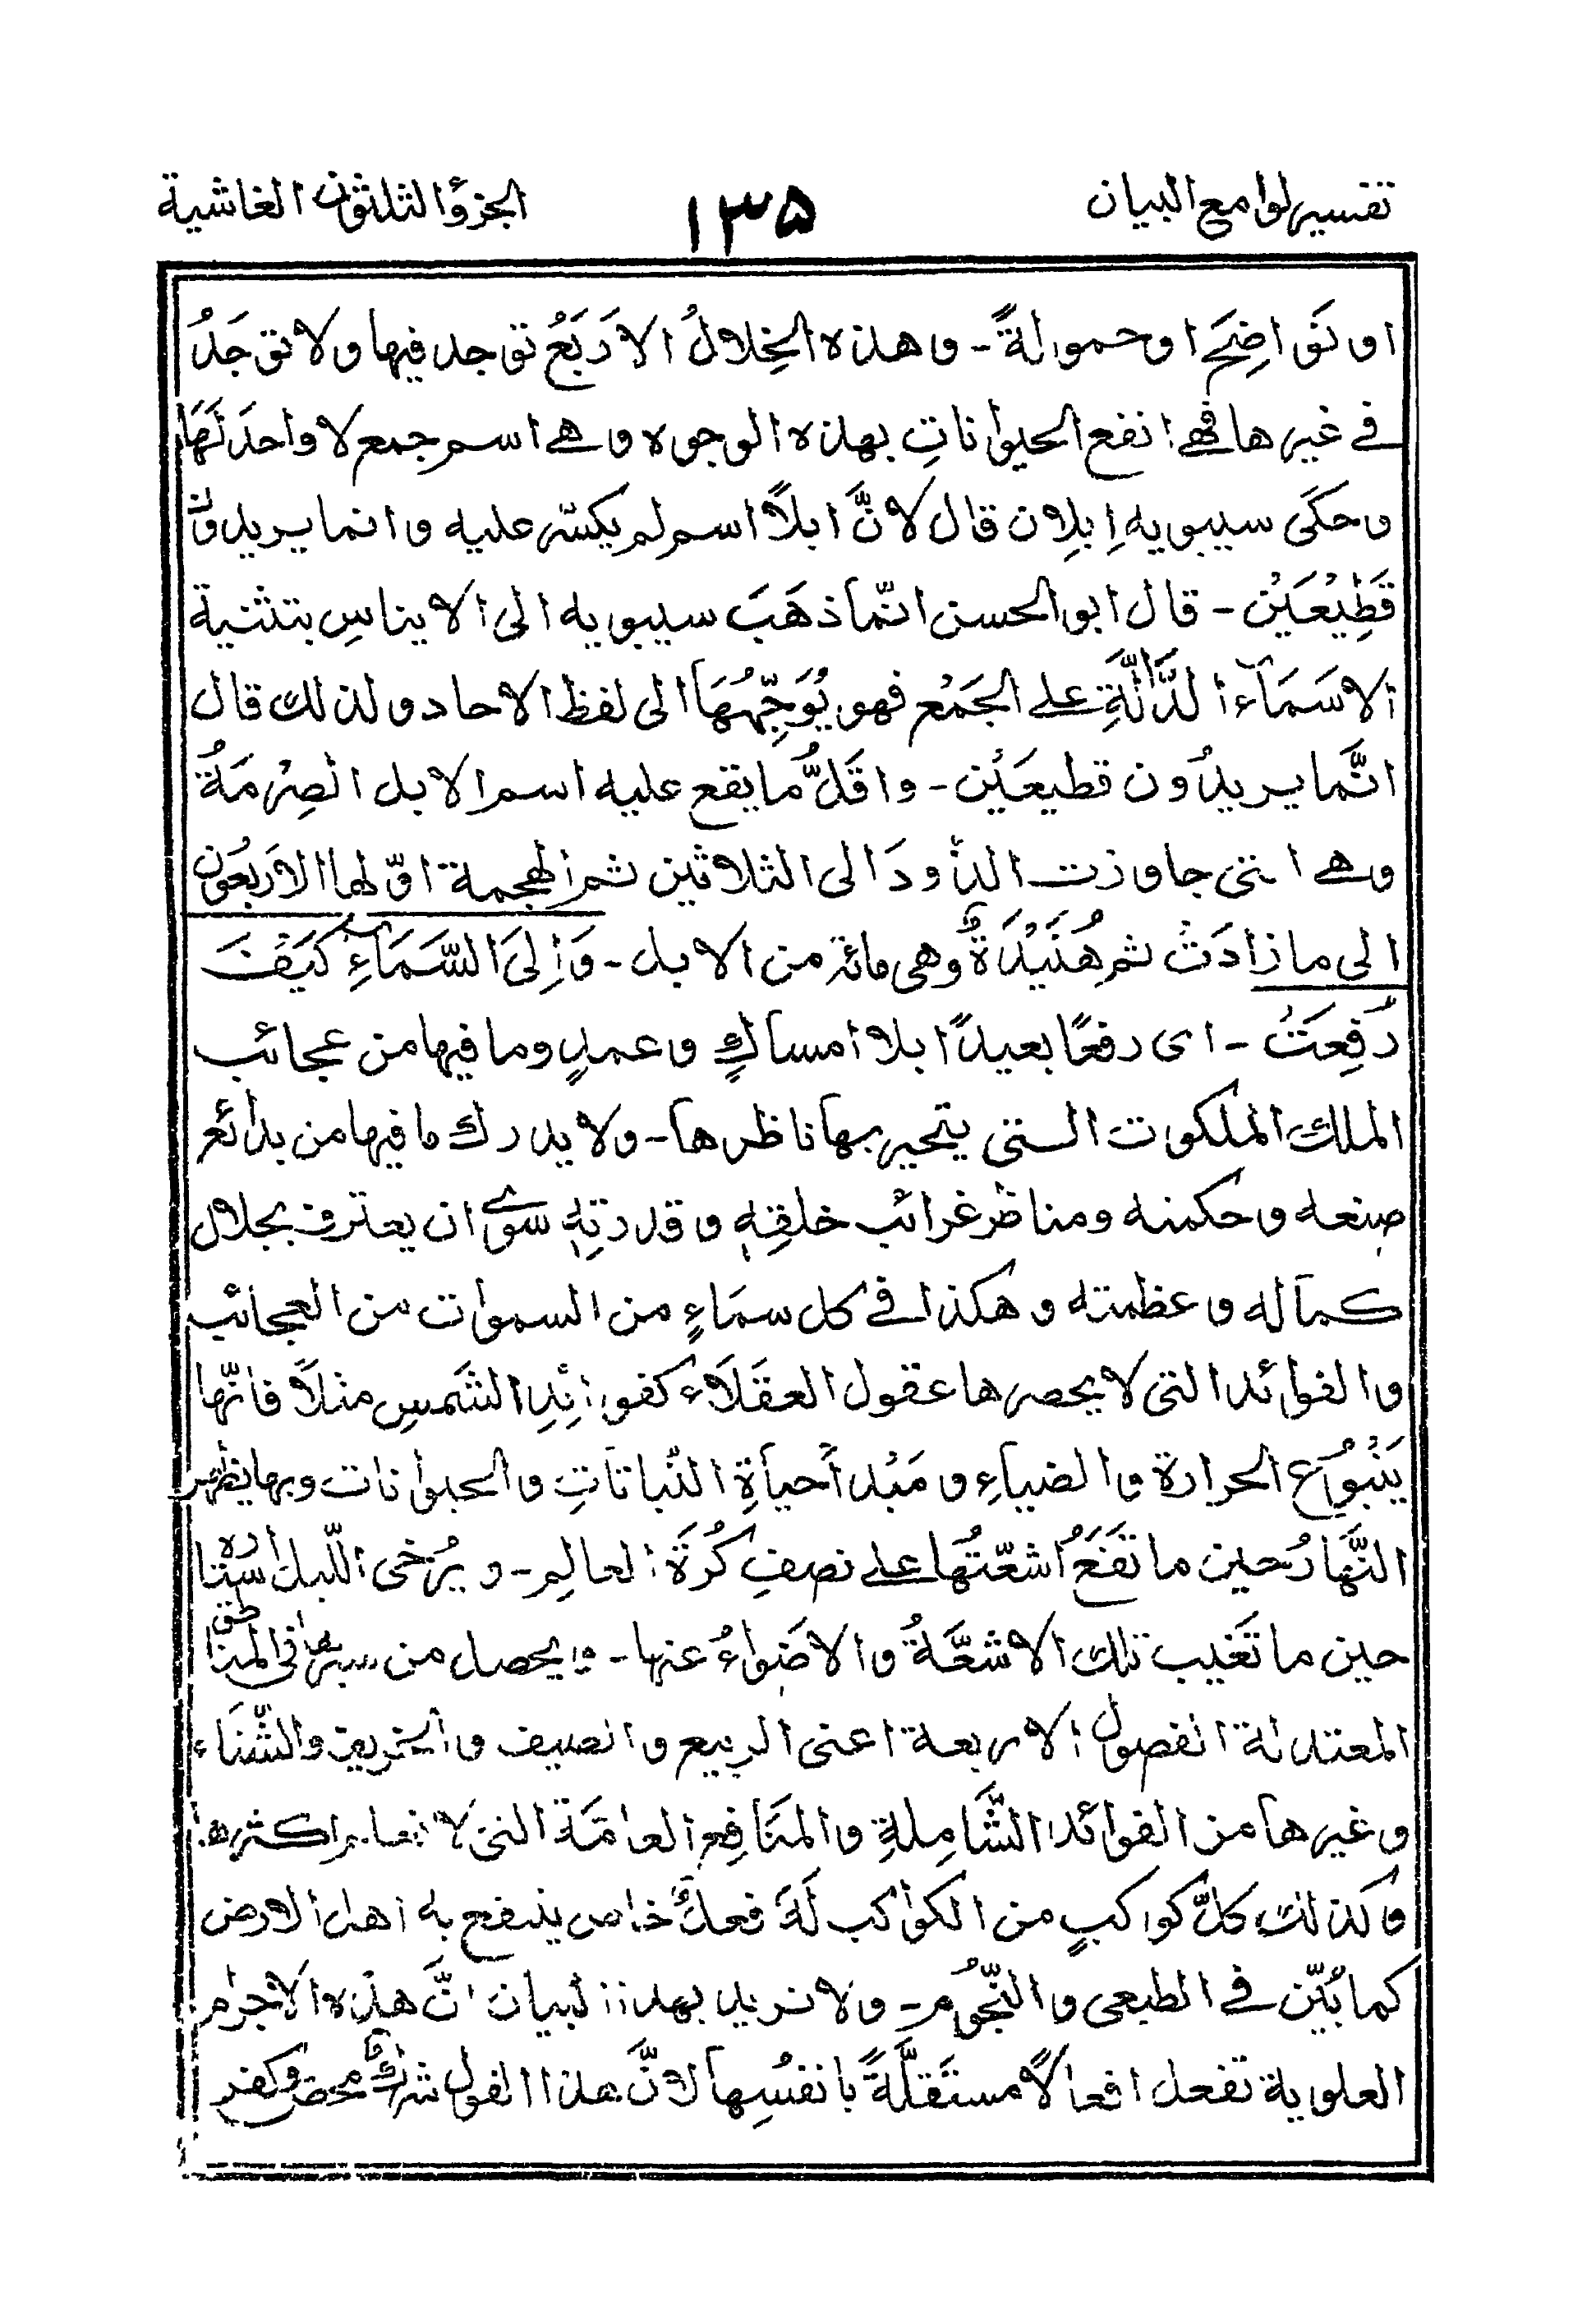 تفسير لوامع البيان ١٣٥ الجزؤ الثلثون الغاشية
او نَوَاضِحَ او حمولةً - و هذه الخِلالُ الاَربَعُ توجد فيها و لا توجَدُ
فے غيرها فهے انفع الحيواناتِ بهذه الوجوه و هے اسم جمع لا واحدَ لَهَا
و حكَى سيبويه اِبِلان قال لانَّ ابلاً اسم لم يكسّر عليه و انما يريدون
قَطِيْعَيْن - قال ابو الحسن انّما ذهَبَ سيبويه الى الايناسِ بتثنية
الاسَمَآء الدَّالَّةِ على الجَمْع فهو يُوَجِّهُهَا الى لفظ الاحاد و لذلك قال
انَّما يريدُون قطيعَيْن - و اقَلُّ ما يقع عليه اسم الابل الصِرْمَةُ
و هے التى جاوزت الذَّودَ الى الثلاثين ثم الهجمة اوّلها الاَربَعُون
الى ما زادَتْ ثم هُنَيْدَةٌ وهى مائة من الابل - وَ اِلىَ السَّمَآءِ كَيْفَ
رُفِعَتْ - اى رفعًا بعيدًا بلا امساكٍ و عمدٍ وما فيها من عجائب
الملك الملكوت التى يتحير بها ناظرها - و لا يدرك ما فيها من بدائع
صنعه و حكمته و مناظر غرائب خلقِهٖ و قدرتِهٖ سوٰے ان يعترف بجلال
كمآله و عظمته و هكذا فے كل سمَاءٍ من السموات من العجائب
و الفوائد التى لا يحصرها عقول العقَلَاء كفوائدِ الشَمسِ مثلاً فانّها
يَنْبُوعُ الحرارة و الضياءِ و مَبْدأ حياةِ النّباتَاتِ و الحيوانات و بها يظهر
النَّهَارُ حين ما تَقَعُ اشعّتُها على نصفِ كُرَة العالِم - و يُرْخى اللّيل أستاره
حين ما تَغيب تلك الاشعَّةُ و الاضواءُ عنها - و يحصل من سيرها فى المناطق
المعتدلة الفصول الاربعة اعنى الربيع و الصيف و الخريف و الشّتَاء
و غيرها من الفوائد الشَّامِلةِ و المنَافِعِ العامَّة التى لا اكثرها
و كذلك كلُّ كواكبٍ من الكواكب لَهٗ فعلٌ خاص ينتفع به اهل الارض
كما بُيّن فے الطبعى و النُّجُوم - و لا نريد بهذا البيان انَّ هذه الاجرام
العلوية تفعل افعالًا مستَقلَّةً بانفسُِها لانَّ هذا القول شركٌ محض و كفر